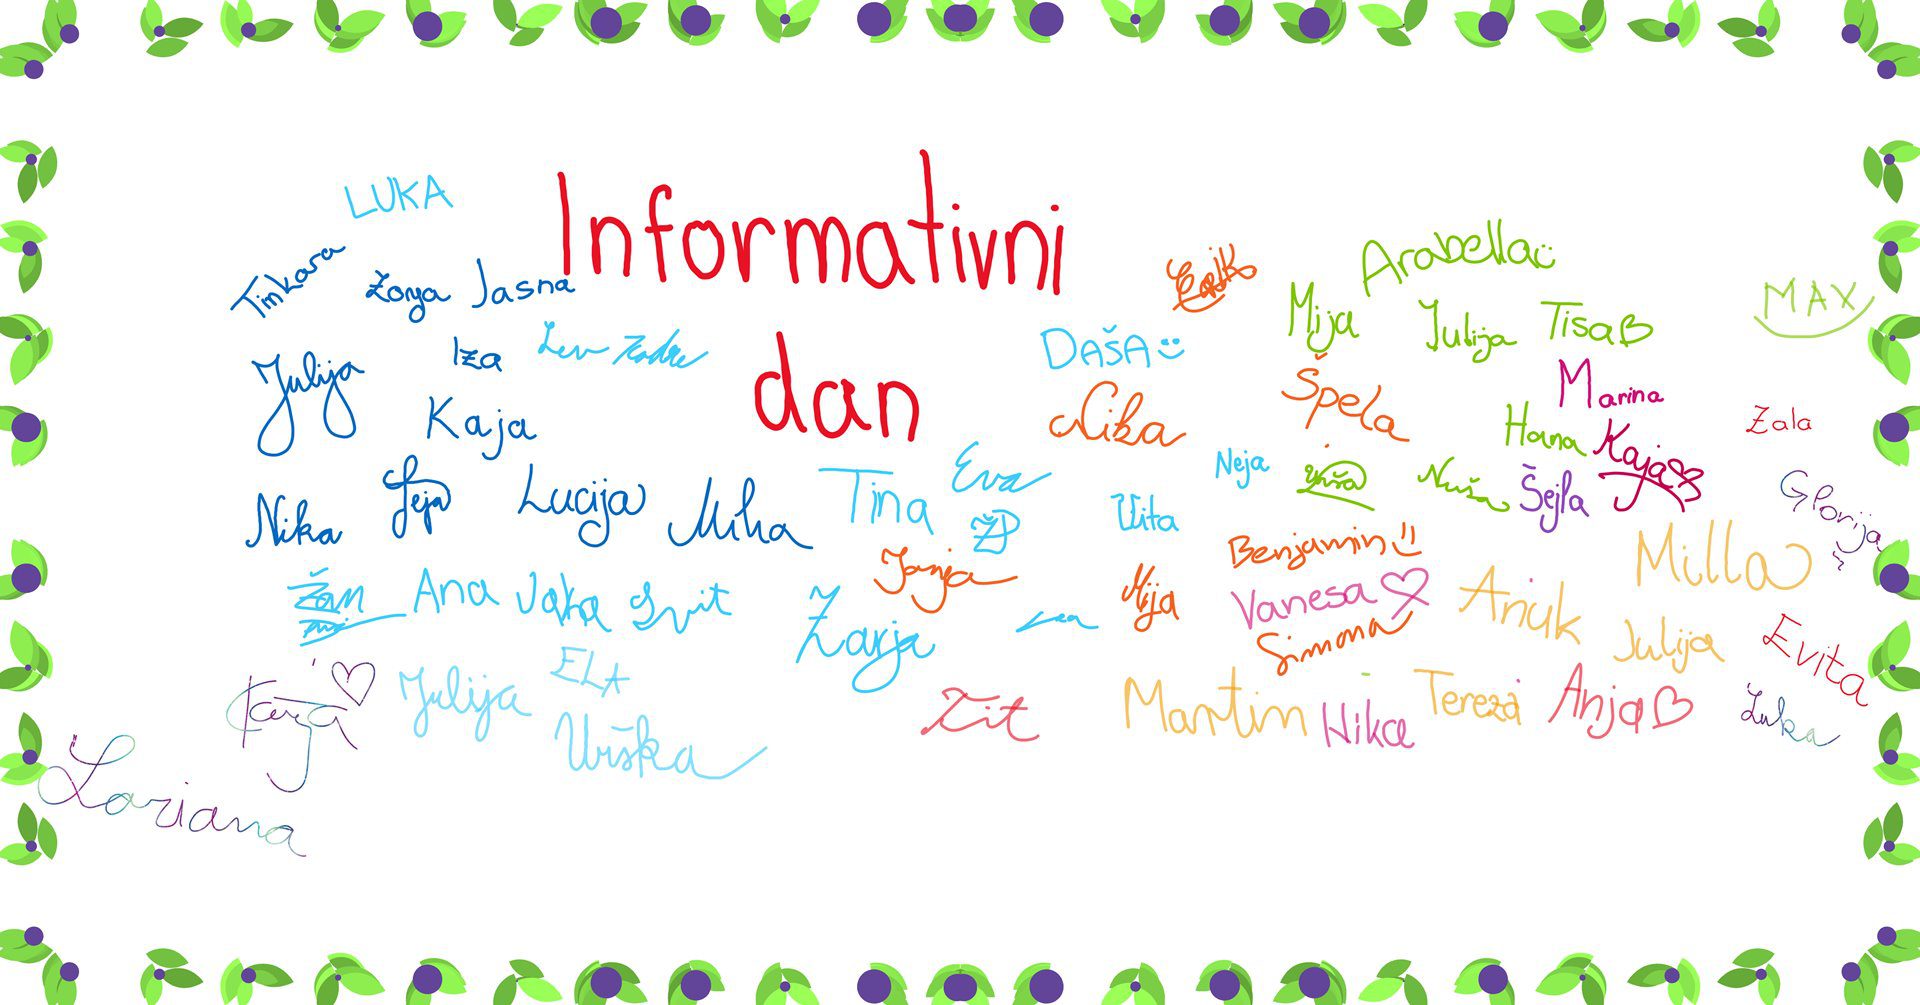 Informativni
dan
LUKA
Tinkara
Zoya Jasna
Arabella
MAX
Mija Julija TisaB
Julija Iza Lev
DAŠA
Marina
Kaja
Nika
Špela
Hana Kaja
Zala
Neja
Nuša Šejla
Glorija
Nika Teja Lucija Miha
Tina Eva
ŽP
Vita
Benjamin
Milla
Žan
Ana Jaka Svit
Janja
Zarja
Lea
Mija
Vanesa
Simona
Anuk
Julija
Evita
Kaja
Julija
ELA
Urška
Tit
Martin Nika
Tereza Anja
Luka
Loriana